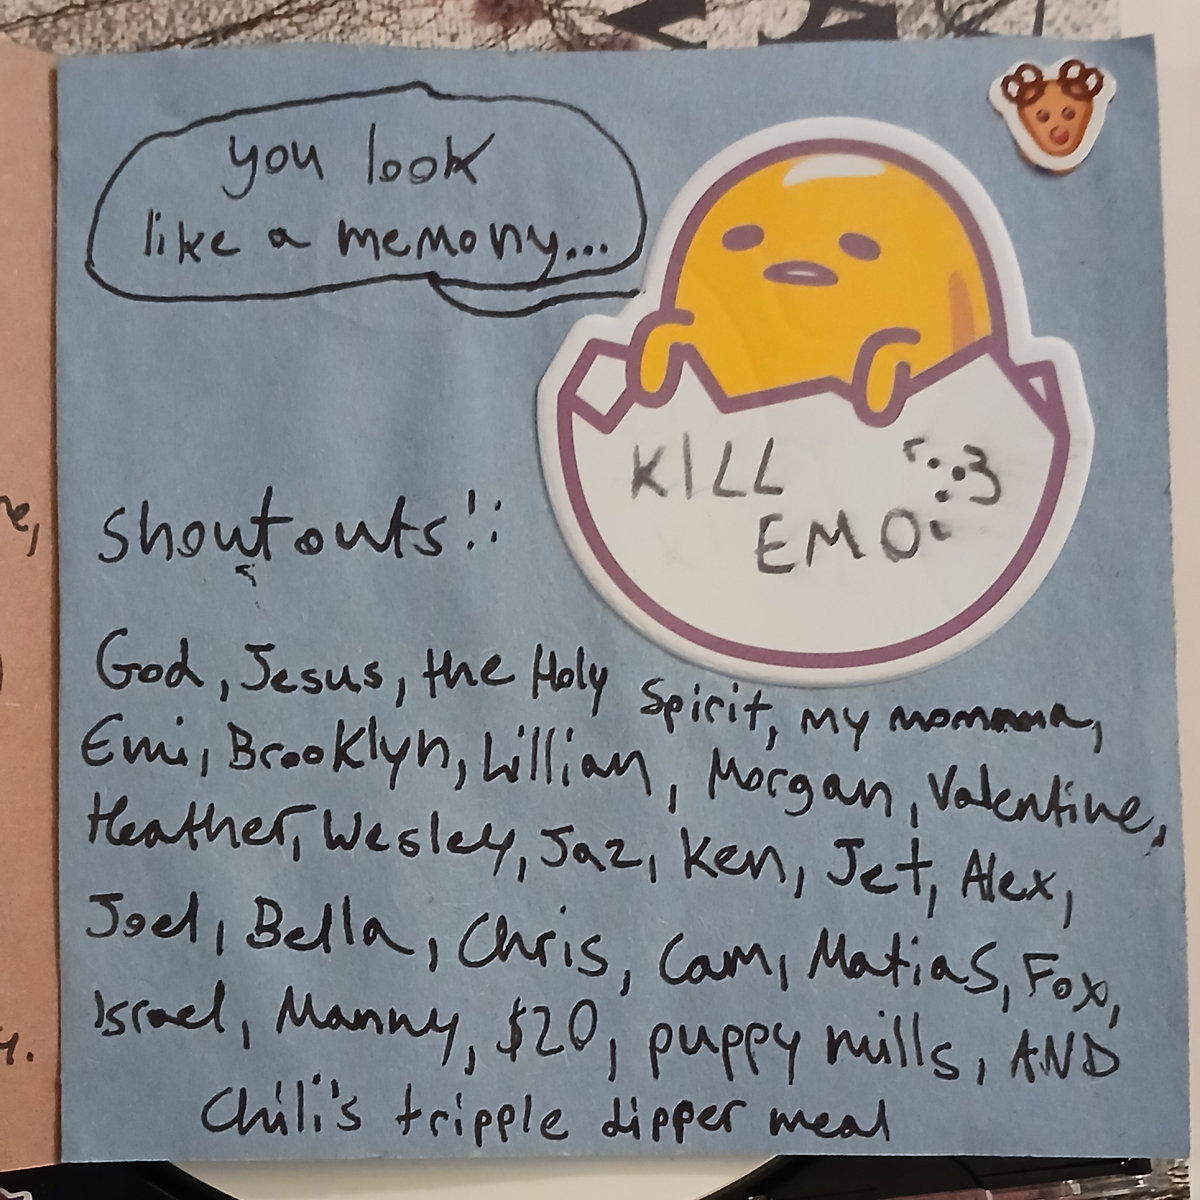 you look
like a memory...
KILL
EMO
Shoutouts!!
God, Jesus, the Holy Spirit, my momma,
Emi, Brooklyn, Lillian, Morgan, Valentine,
Heather, Wesley, Jaz, Ken, Jet, Alex,
Joel, Bella, Chris, Cam, Matias, Fox,
Israel, Manny, $20, puppy mills, AND
Chili's tripple dipper meal